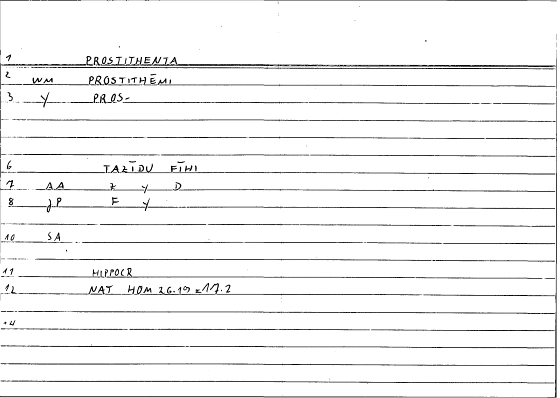 1 PROSTITHENTA
2 WM PROSTITHĒMI
3 Y PROS-
6 TAZĪDU FĪHI
7 AA Z Y D
8 JP F Y
10 SA
11 HIPPOCR
12 NAT HOM 26.19 = 17.2